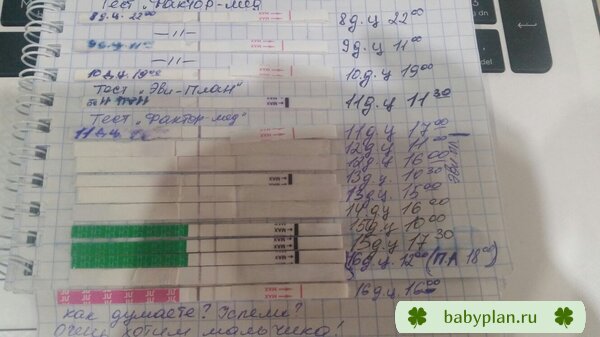 Тест "Фактор-мед"
8 д.ц. 22⁰⁰ MAX 8 д.ц 22⁰⁰
—11— 9 д.ц 11⁰⁰
10 д.ц 19⁰⁰ 10 д.ц 19⁰⁰
Тест "Эви-План"
MAX 11 д.ц 11³⁰
Тест "Фактор-мед"
11 д.ц 17⁰⁰
12 д.ц 11⁰⁰
12 д.ц 16⁰⁰
MAX 13 д.ц 10³⁰
13 д.ц 15⁰⁰
14 д.ц 16⁰⁰
MAX 15 д.ц 10⁰⁰
MAX 15 д.ц 17³⁰
MAX 16 д.ц. 12⁰⁰ (П.А 18⁰⁰)
16 д.ц. 16⁰⁰
как думаете? Успели?
Очень хотим мальчика!
babyplan.ru